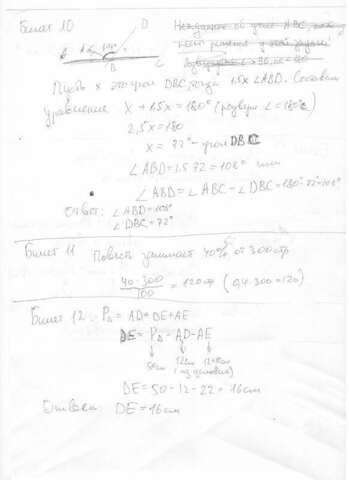 Билет 10
D
A
B
C
Пусть x это угол DBC, тогда 1.5x ∠ABD. Составим
уравнение x + 1.5x = 180° (развернут ∠ = 180°)
2,5x = 180
x = 72° - угол DBC
∠ABD = 1.5 · 72 = 108° или
∠ABD = ∠ABC - ∠DBC = 180° - 72° = 108°
Ответ: ∠ABD = 108°
∠DBC = 72°
Билет 11 Повесть занимает 40% от 300 стр
40 · 300 / 100 = 120 стр (0,4 · 300 = 120)
Билет 12. P△ = AD + DE + AE
DE = P△ = AD - AE
50см 12см 12+10см
(из условия)
DE = 50 - 12 - 22 = 16см
Ответ: DE = 16см